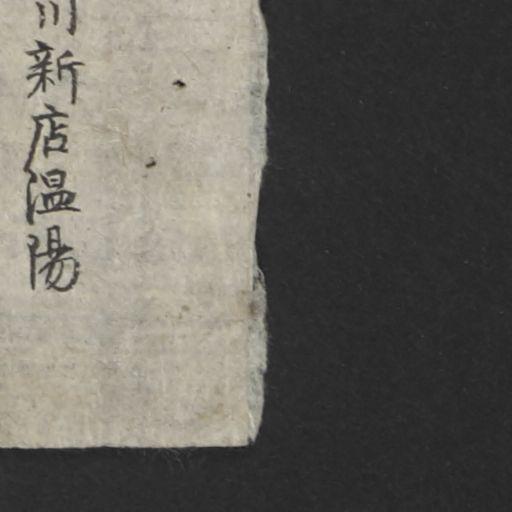 川新店温陽